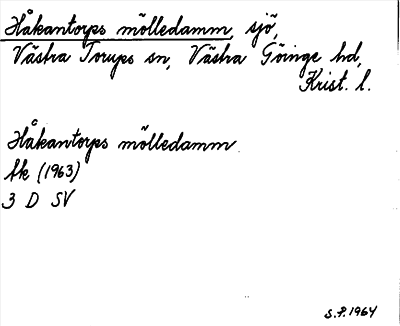 Håkantorps mölledamm, sjö,
Västra Torups sn, Västra Göinge hd,
Krist. l.
Håkantorps mölledamm
Ak (1963)
3 D SV
S.P. 1964